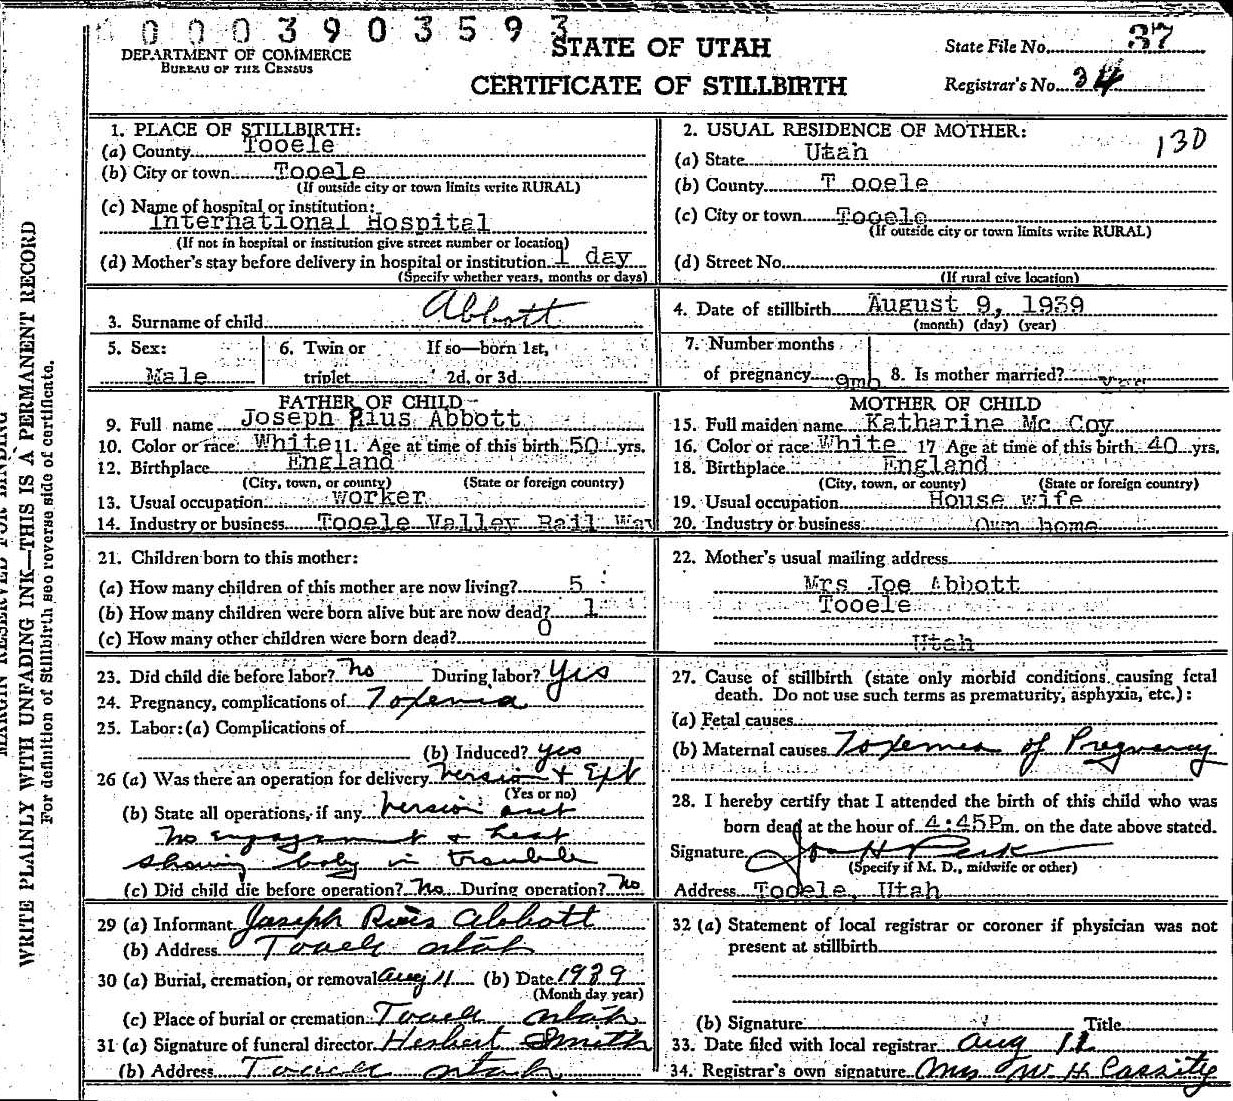 0003903593
DEPARTMENT OF COMMERCE
BUREAU OF THE CENSUS
STATE OF UTAH
CERTIFICATE OF STILLBIRTH
State File No. 37
Registrar's No. 34
MARGIN RESERVED FOR BINDING
WRITE PLAINLY WITH UNFADING INK—THIS IS A PERMANENT RECORD
For definition of Stillbirth see reverse side of certificate.
1. PLACE OF STILLBIRTH:
(a) County Tooele
(b) City or town Tooele
(If outside city or town limits write RURAL)
(c) Name of hospital or institution:
International Hospital
(If not in hospital or institution give street number or location)
(d) Mother's stay before delivery in hospital or institution 1 day
(Specify whether years, months or days)
2. USUAL RESIDENCE OF MOTHER:
130
(a) State Utah
(b) County T ooele
(c) City or town Tooele
(If outside city or town limits write RURAL)
(d) Street No.
(If rural give location)
3. Surname of child Abbott
4. Date of stillbirth August 9, 1939
(month) (day) (year)
5. Sex:
Male
6. Twin or If so—born 1st,
triplet 2d, or 3d
7. Number months
of pregnancy 9mh
8. Is mother married?
FATHER OF CHILD
9. Full name Joseph Rius Abbott
10. Color or race White 11. Age at time of this birth 50 yrs.
12. Birthplace England
(City, town, or county) (State or foreign country)
13. Usual occupation worker
14. Industry or business Tooele Valley Rail Way
MOTHER OF CHILD
15. Full maiden name Katharine Mc Coy
16. Color or race White 17 Age at time of this birth 40 yrs.
18. Birthplace England
(City, town, or county) (State or foreign country)
19. Usual occupation House wife
20. Industry or business Own home
21. Children born to this mother:
(a) How many children of this mother are now living? 5
(b) How many children were born alive but are now dead? 1
(c) How many other children were born dead? 0
22. Mother's usual mailing address
Mrs Joe Abbott
Tooele
Utah
23. Did child die before labor? No During labor? Yes
24. Pregnancy, complications of Toxemia
25. Labor: (a) Complications of
(b) Induced? yes
26 (a) Was there an operation for delivery Version + Ext
(Yes or no)
(b) State all operations, if any Version
No engagement + heart
showing baby in trouble
(c) Did child die before operation? No During operation? No
27. Cause of stillbirth (state only morbid conditions causing fetal
death. Do not use such terms as prematurity, asphyxia, etc.):
(a) Fetal causes
(b) Maternal causes Toxemea of Pregnancy
28. I hereby certify that I attended the birth of this child who was
born dead at the hour of 4:45P m. on the date above stated.
Signature Jos H Peck
(Specify if M. D., midwife or other)
Address Tooele, Utah
29 (a) Informant Joseph Rius Abbott
(b) Address Tooele Utah
30 (a) Burial, cremation, or removal Aug 11 (b) Date 1939
(Month day year)
(c) Place of burial or cremation: Tooele Utah
31 (a) Signature of funeral director Herbert Smith
(b) Address Tooele Utah
32 (a) Statement of local registrar or coroner if physician was not
present at stillbirth
(b) Signature Title
33. Date filed with local registrar Aug 11
34. Registrar's own signature Mrs W. H. Cassity